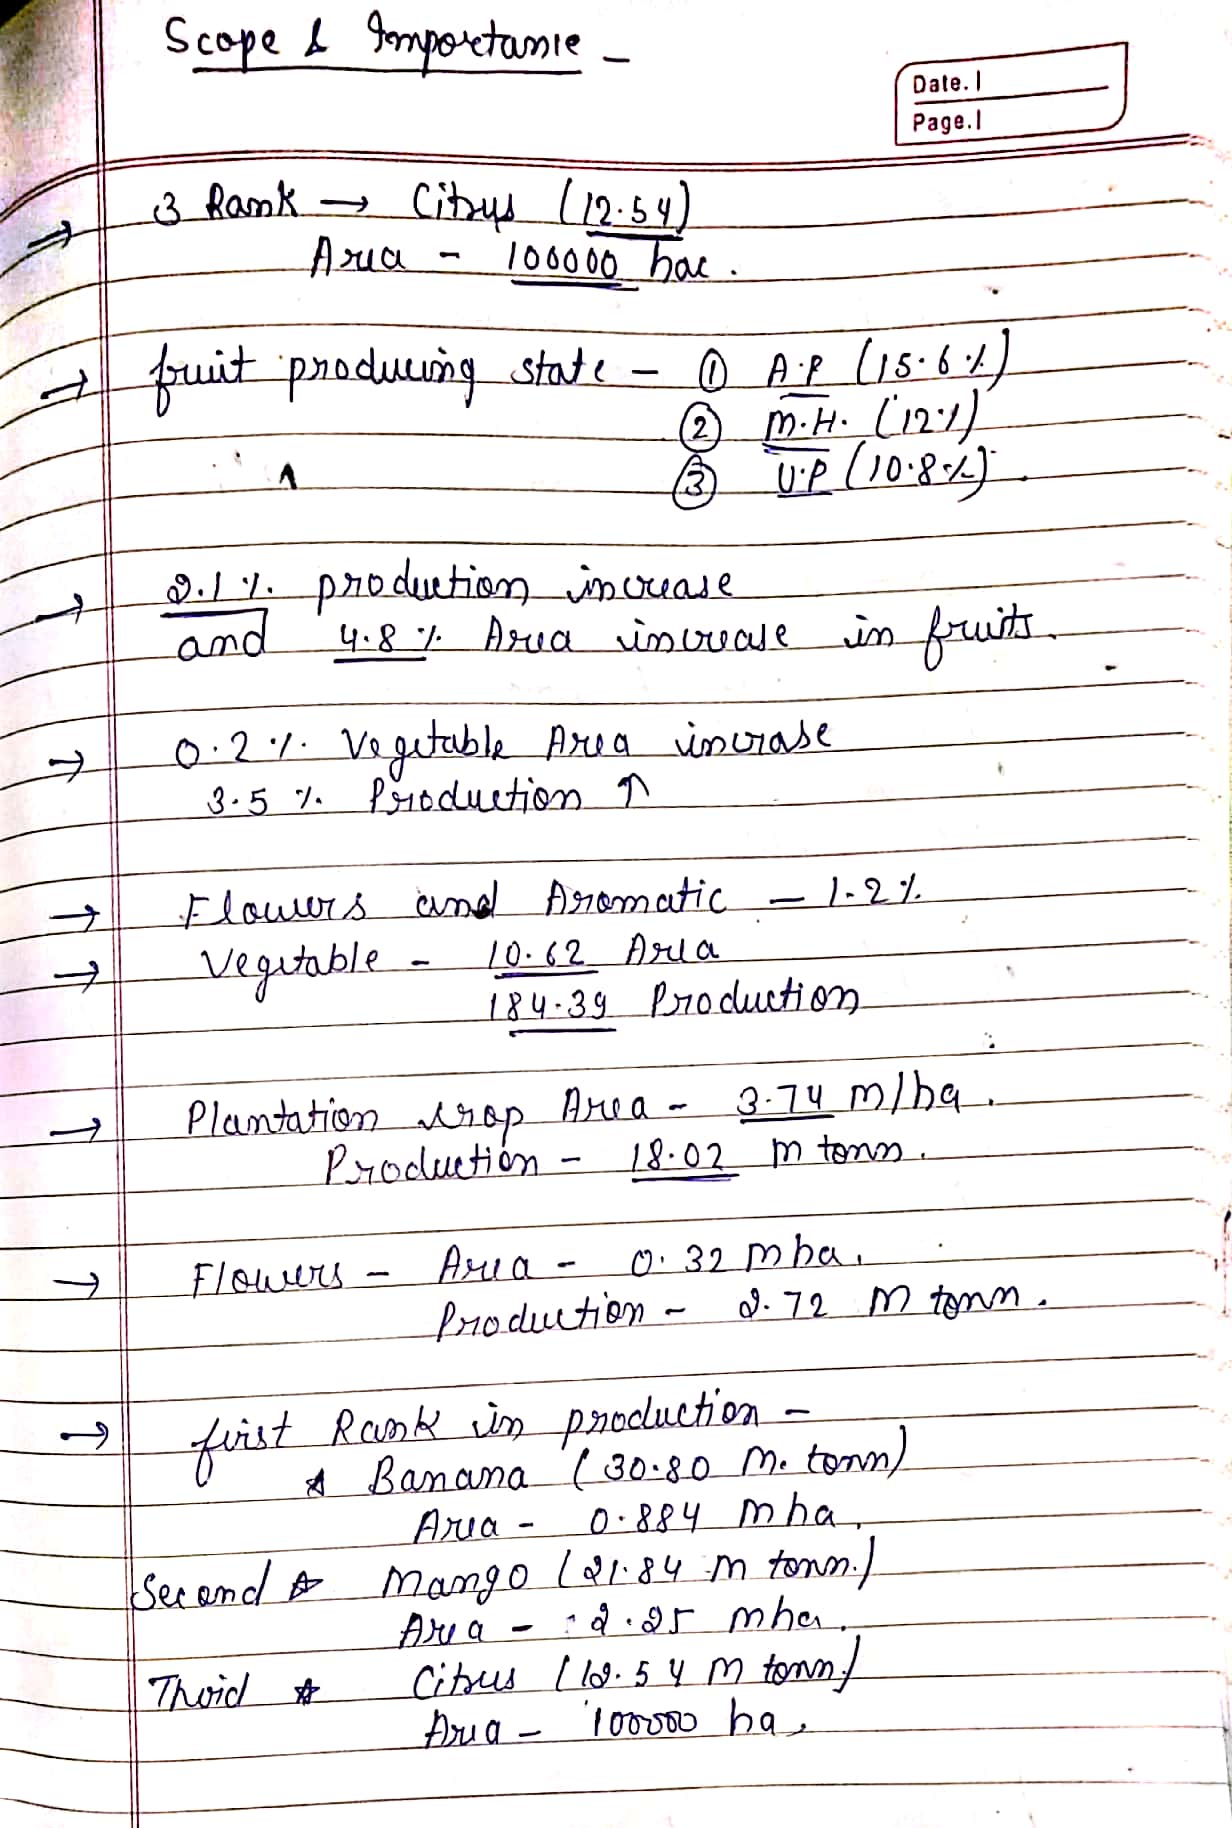 Scope & Importance -
Date.
Page.
→ 3 Rank → Citrus (12.54)
Area - 100000 hac.
→ fruit producing state - ① A.P (15.6%)
② M.H. (12%)
③ U.P (10.8%)
→ 2.1%. production increase
and 4.8 %. Area increase in fruits.
→ 0.2 %. Vegetable Area incrase
3.5 %. Production ↑
→ Flowers and Aromatic - 1.2%.
→ Vegetable - 10.62 Area
184.39 Production
→ Plantation crop Area - 3.74 m/ha.
Production - 18.02 m tonn.
→ Flowers - Area - 0.32 mha.
Production - 2.72 m tonn.
→ first Rank in production -
☆ Banana (30.80 M. tonn)
Area - 0.884 mha.
Second ☆ Mango (21.84 m tonn.)
Area - 2.25 mha.
Thoid ☆ Citrus (12.54 m tonn.)
Area - 100000 ha.